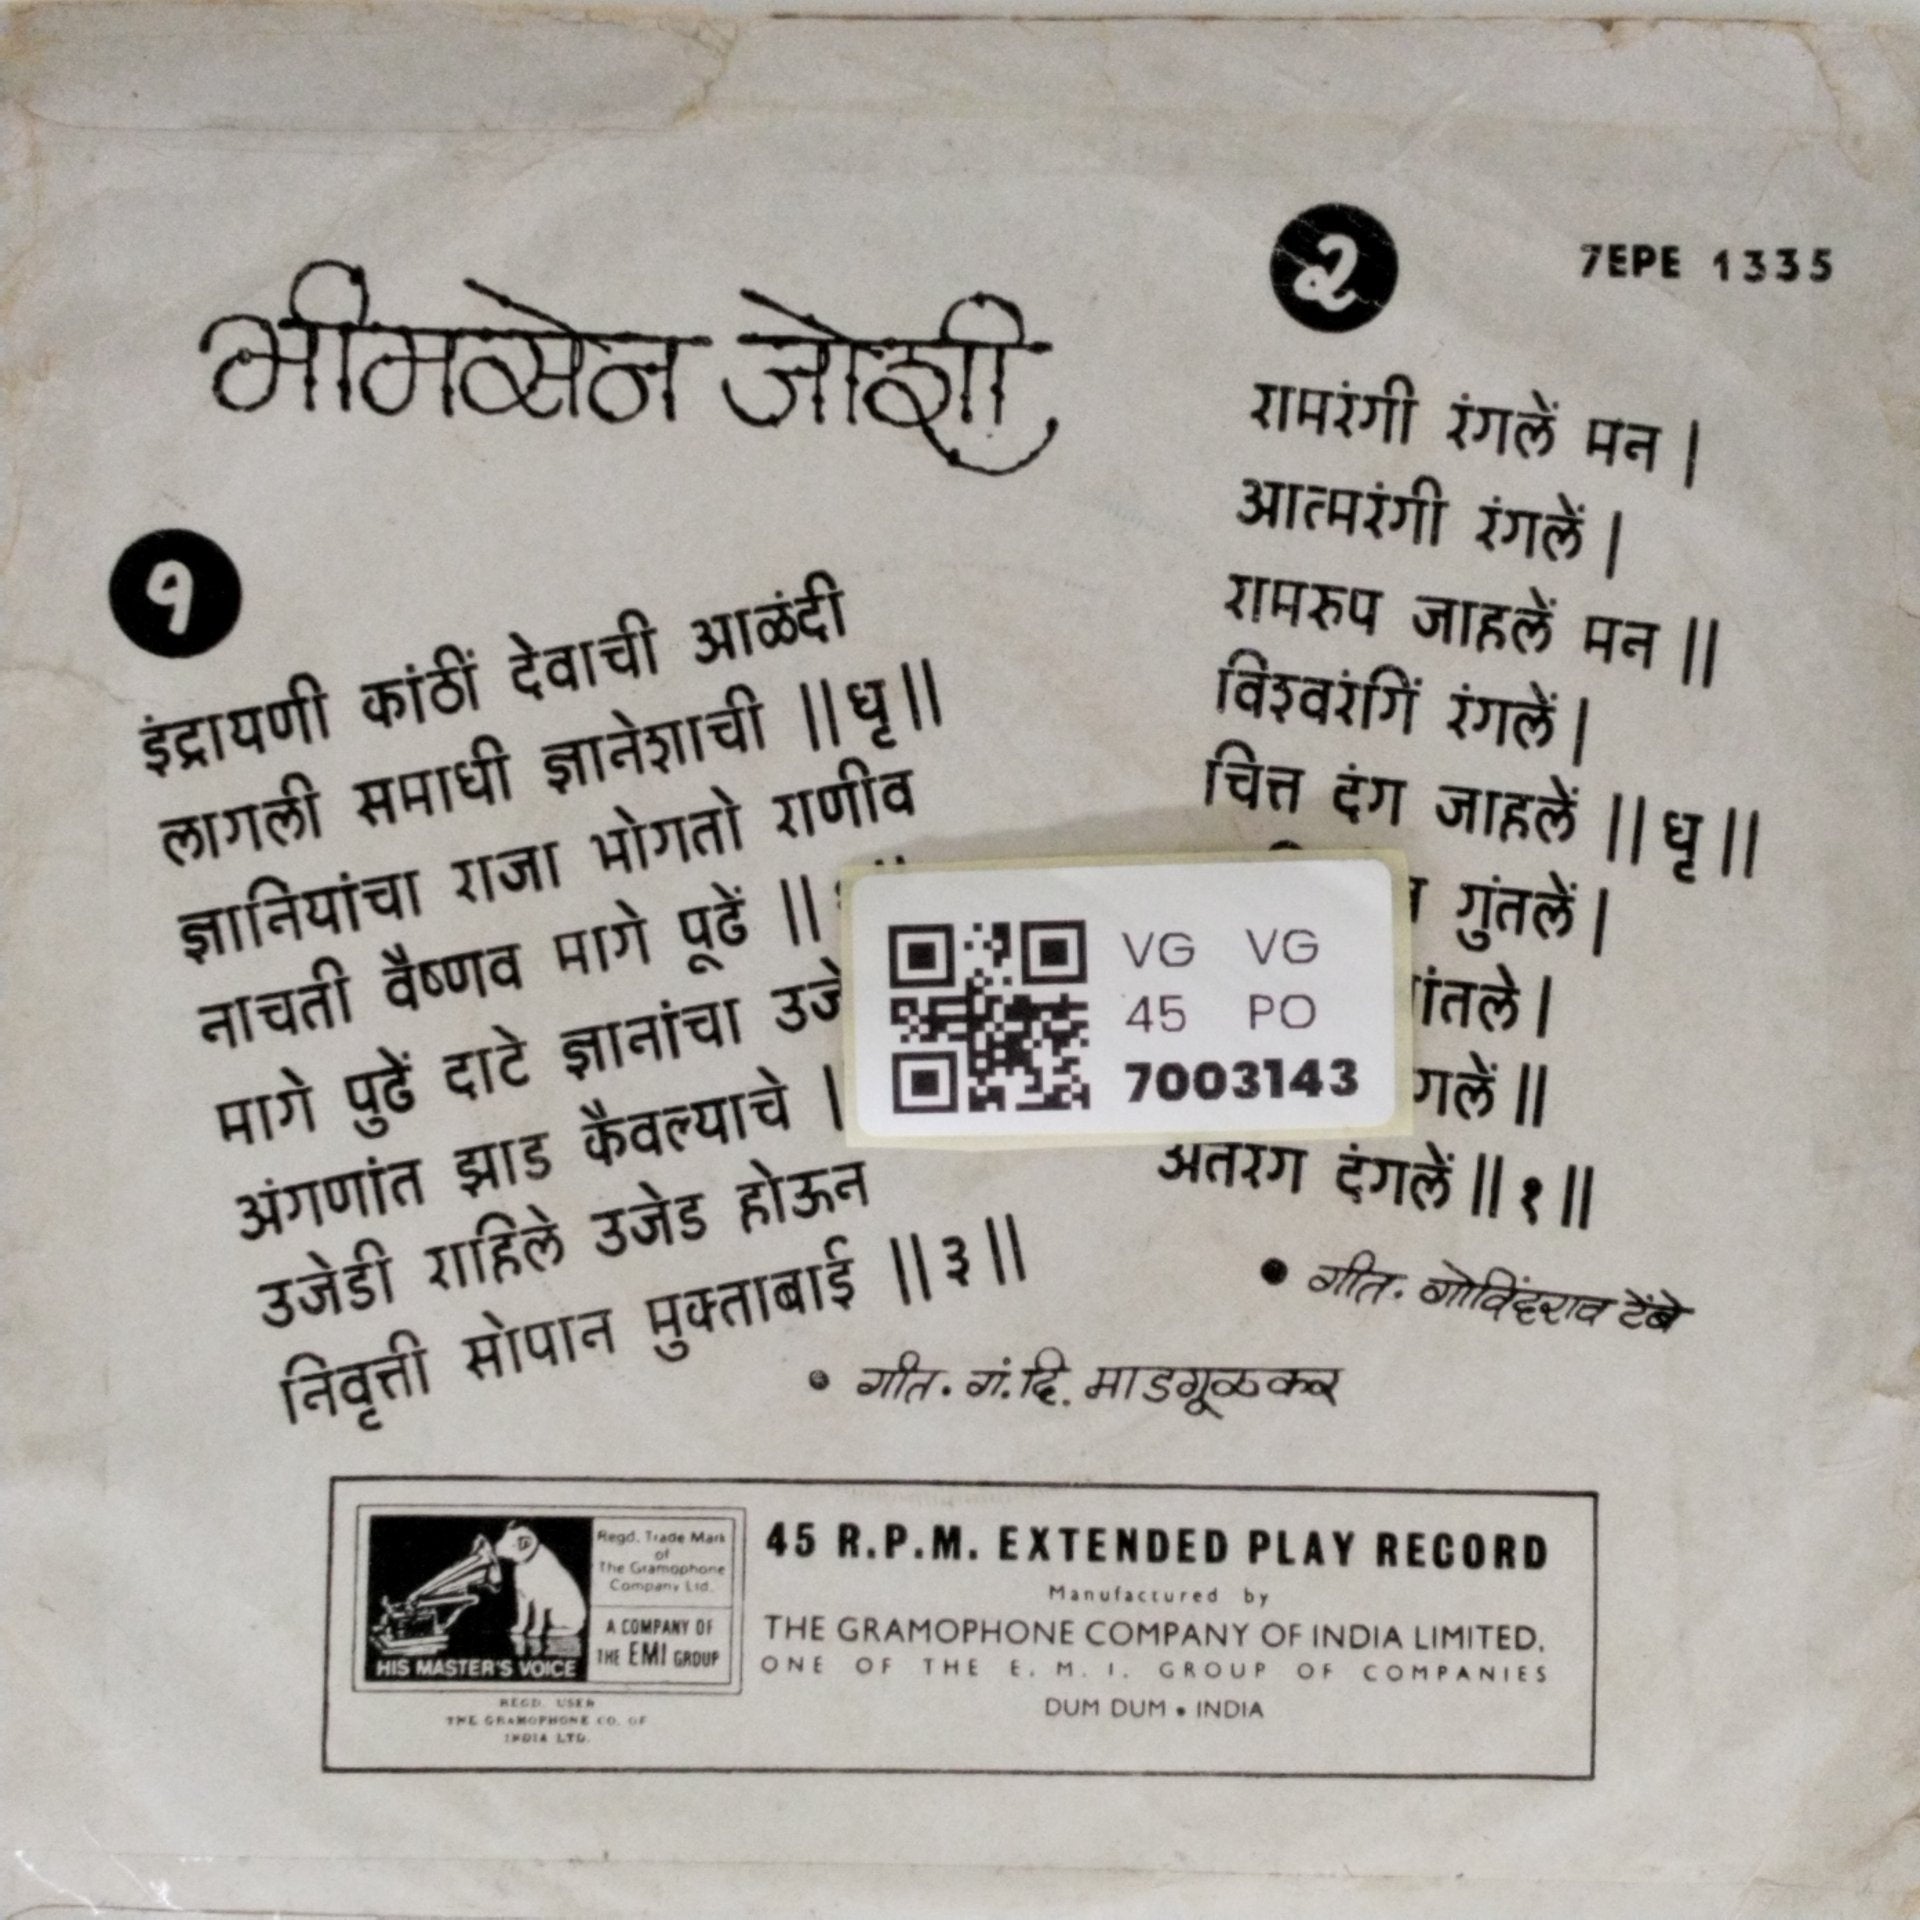 भीमसेन जोशी
१
इंद्रायणी कांठीं देवाची आळंदी
लागली समाधी ज्ञानेशाची ||धृ||
ज्ञानियांचा राजा भोगतो राणीव
नाचती वैष्णव मागे पूढें ||
मागे पुढें दाटे ज्ञानांचा
अंगणांत झाड कैवल्याचे |
उजेडी राहिले उजेड होऊन
निवृत्ती सोपान मुक्ताबाई ||३||
• गीत. ग.दि. माडगूळकर
२
7EPE 1335
रामरंगी रंगलें मन |
आत्मरंगी रंगलें |
रामरुप जाहलें मन ||
विश्वरंगिं रंगलें |
चित्त दंग जाहलें ||धृ||
गुंतलें |
||
अंतरंग दंगलें ||१||
• गीत. गोविंदराव टेंबे
VG VG
45 PO
7003143
HIS MASTER'S VOICE
Regd. Trade Mark
of
The Gramophone
Company Ltd.
A COMPANY OF
THE EMI GROUP
REGD. USER
THE GRAMOPHONE CO. OF
INDIA LTD.
45 R.P.M. EXTENDED PLAY RECORD
Manufactured by
THE GRAMOPHONE COMPANY OF INDIA LIMITED,
ONE OF THE E. M. I. GROUP OF COMPANIES
DUM DUM • INDIA